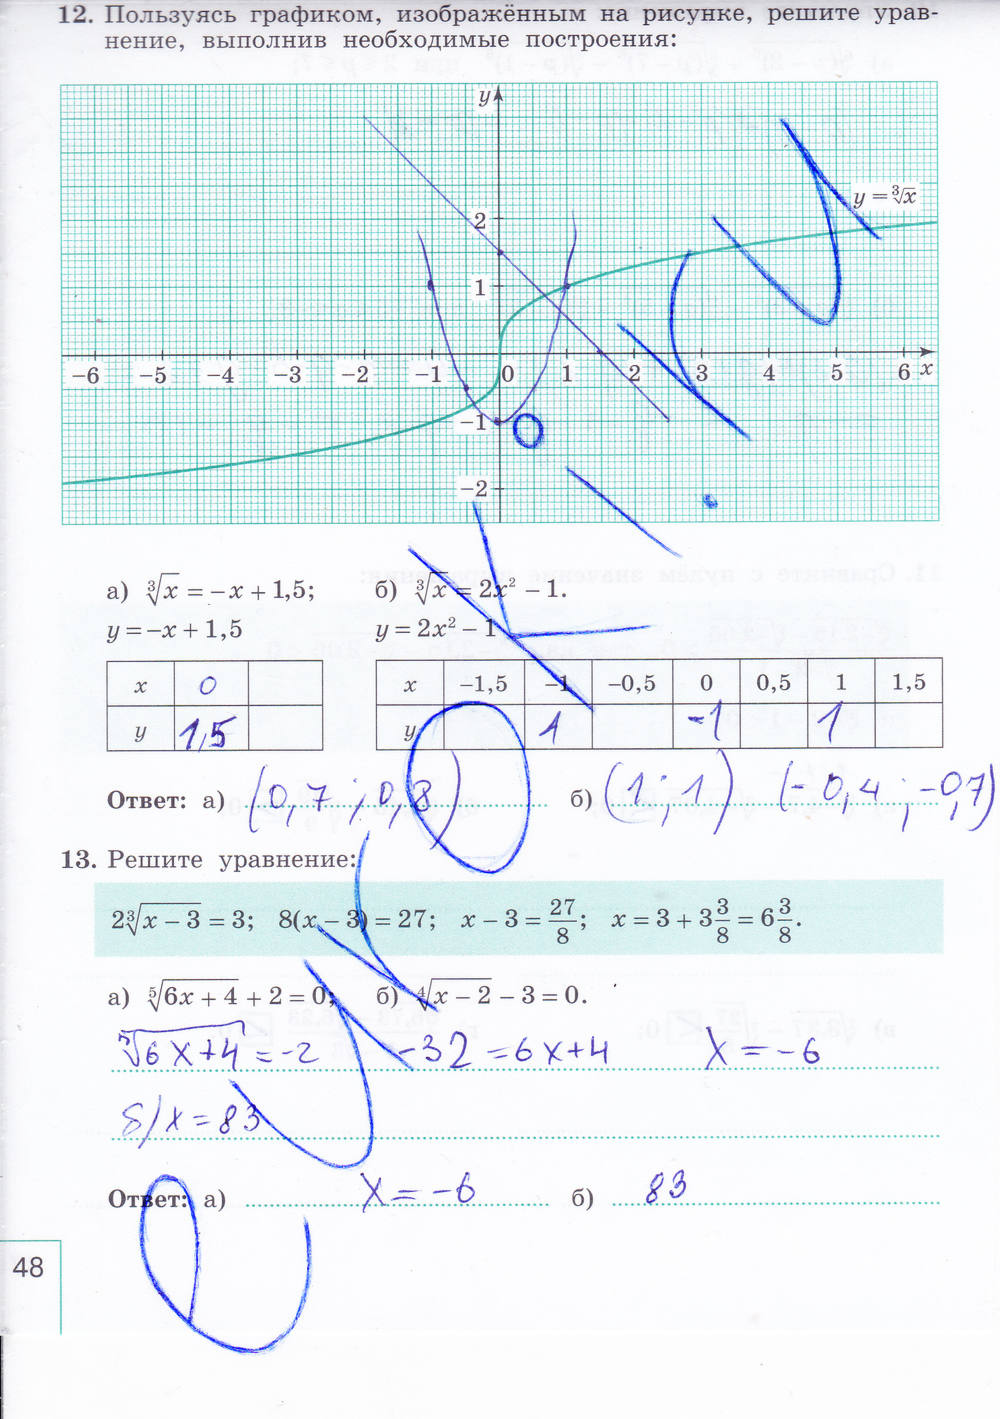 12. Пользуясь графиком, изображённым на рисунке, решите урав-
нение, выполнив необходимые построения:
y
y = ∛x
2
1
−6 −5 −4 −3 −2 −1 0 1 2 3 4 5 6 x
−1
−2
а) ∛x = −x + 1,5; б) ∛x = 2x² − 1.
y = −x + 1,5 y = 2x² − 1
x 0 x −1,5 −1 −0,5 0 0,5 1 1,5
y 1,5 y 1 -1 1
Ответ: а) (0,7 ; 0,8) б) (1 ; 1) (-0,4 ; -0,7)
13. Решите уравнение:
2∛(x − 3) = 3; 8(x − 3) = 27; x − 3 = 27/8; x = 3 + 3 3/8 = 6 3/8.
а) ⁵√(6x + 4) + 2 = 0; б) ⁴√(x − 2) − 3 = 0.
⁵√(6x+4) = -2 -32 = 6x+4 x = -6
б) x = 83
Ответ: а) x = -6 б) 83
48